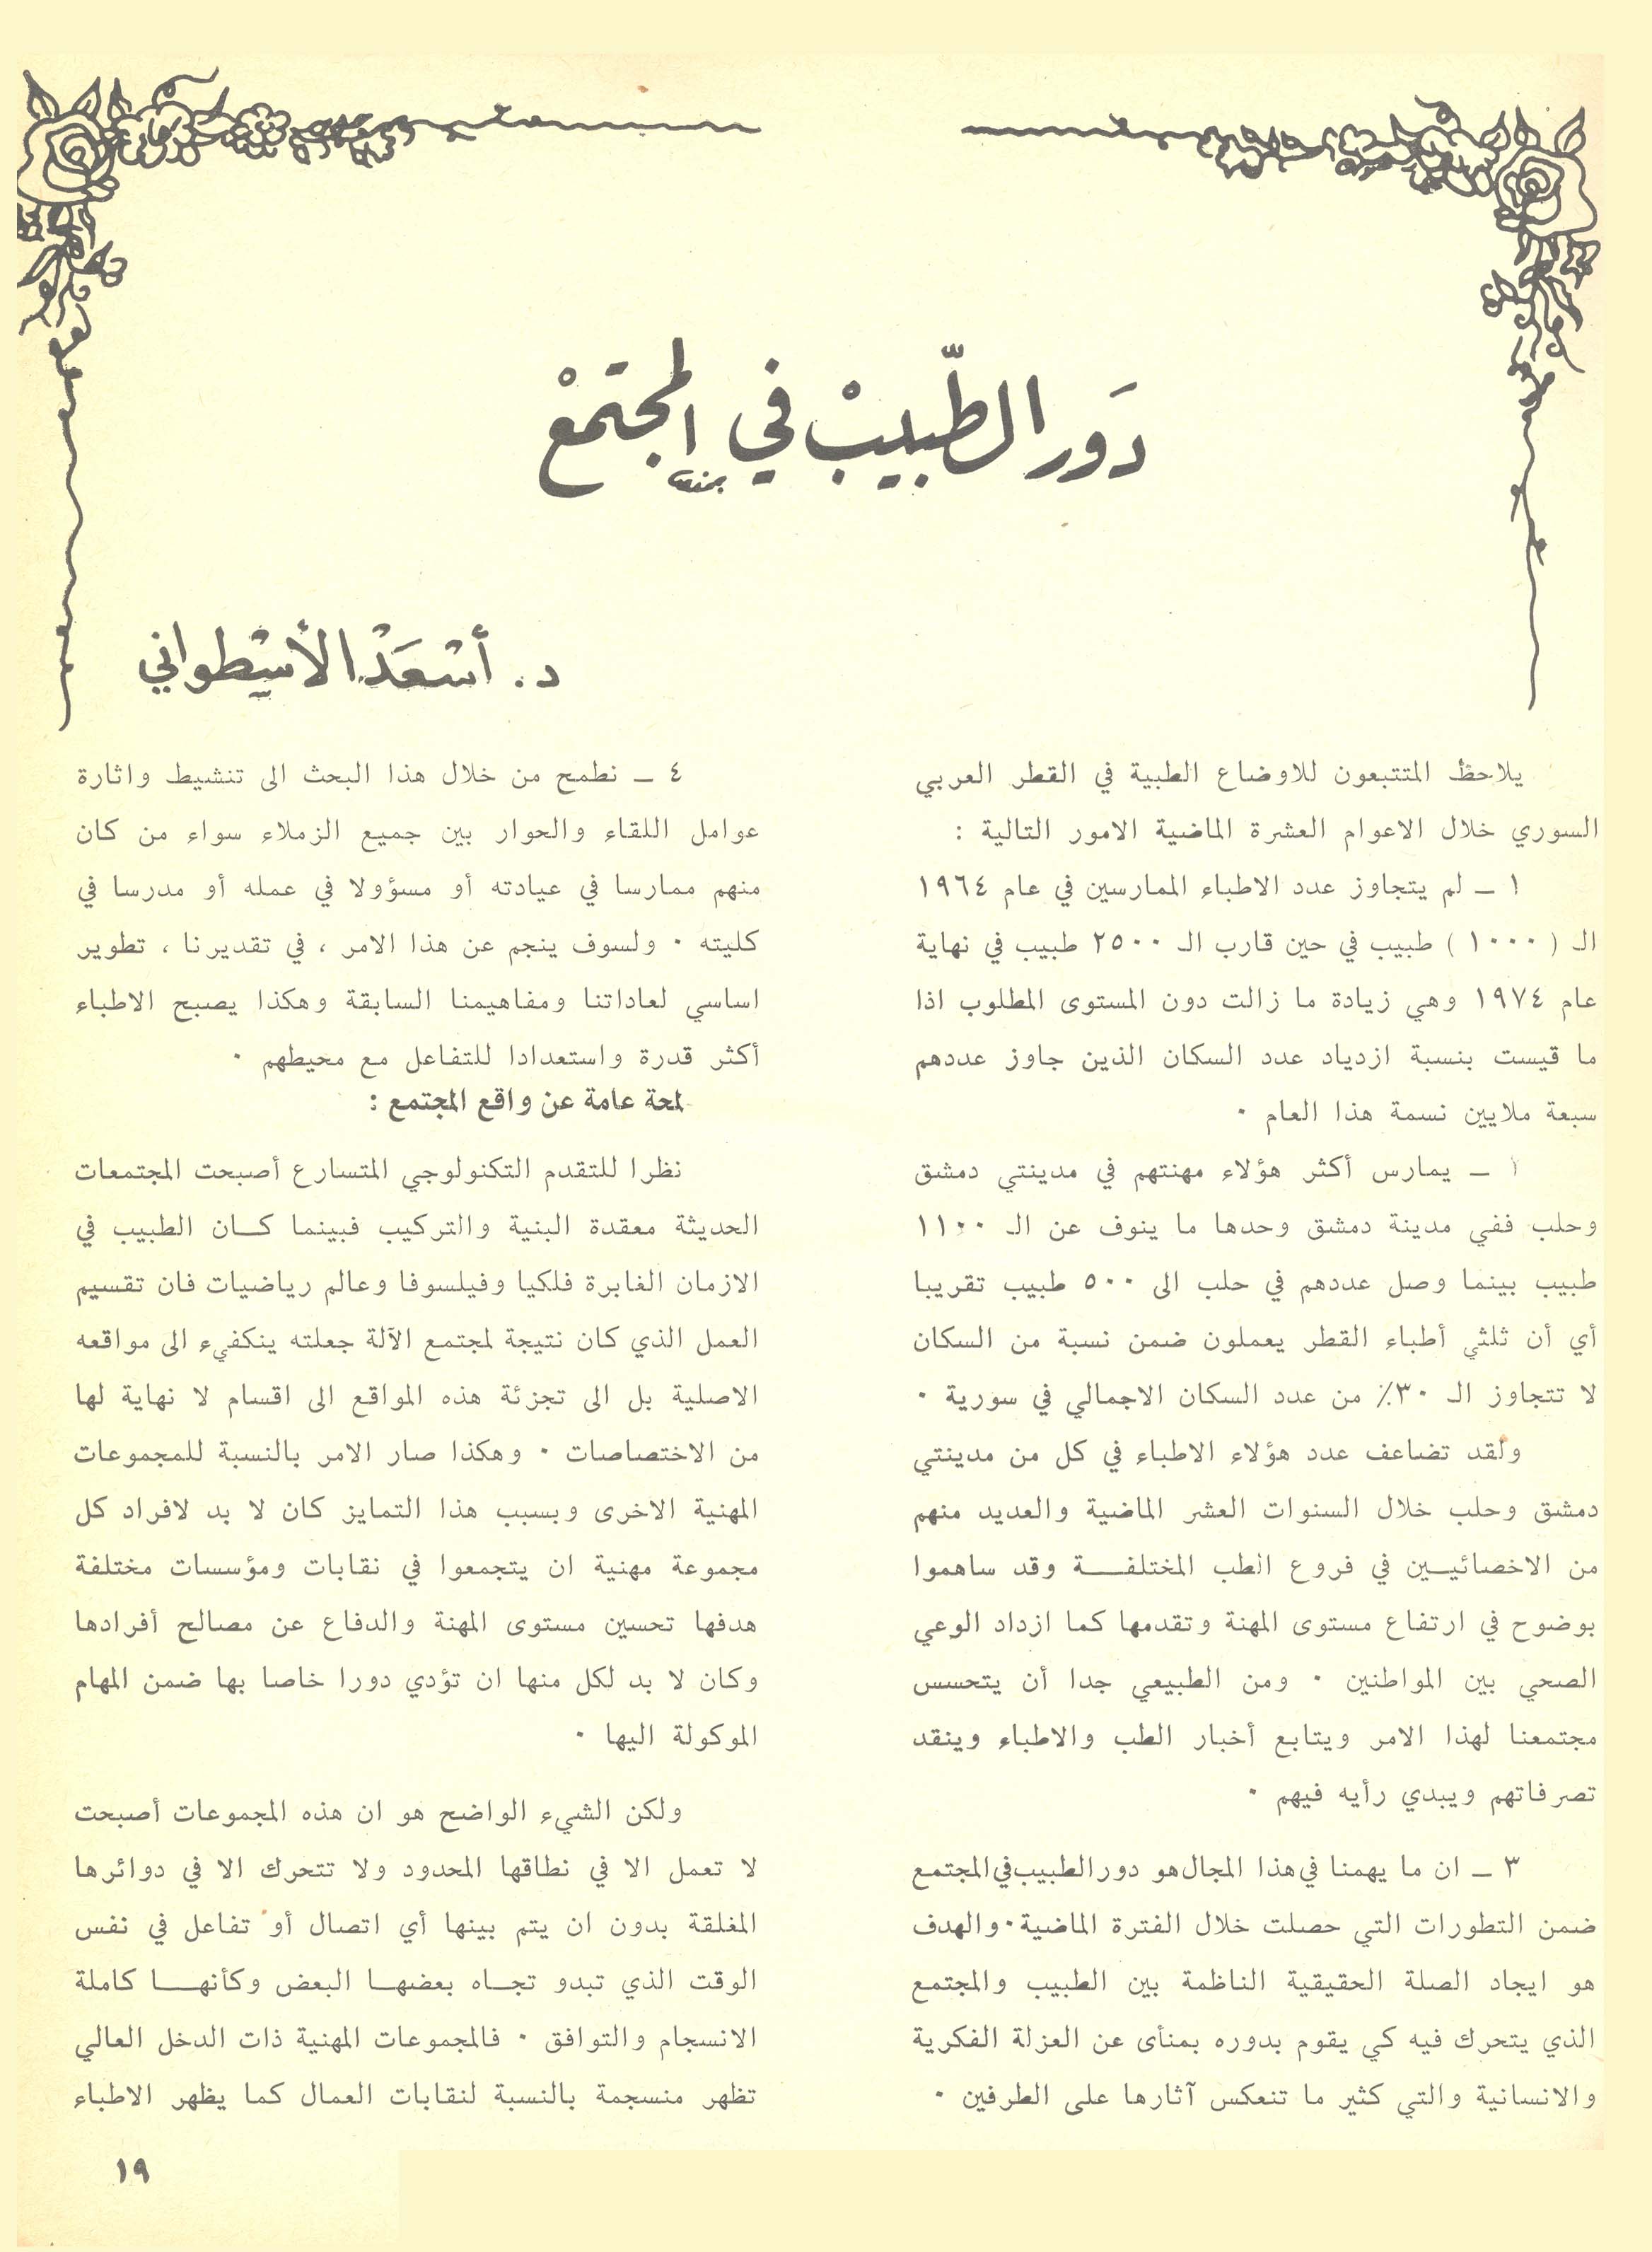 دَور الطّبيبْ في المجتَمعْ
د. أسْعَدْ الأسْطواني
يلاحظ المتتبعون للاوضاع الطبية في القطر العربي
السوري خلال الاعوام العشرة الماضية الامور التالية :
١ ــ لم يتجاوز عدد الاطباء الممارسين في عام ١٩٦٤
الـ ( ١٠٠٠ ) طبيب في حين قارب الـ ٢٥٠٠ طبيب في نهاية
عام ١٩٧٤ وهي زيادة ما زالت دون المستوى المطلوب اذا
ما قيست بنسبة ازدياد عدد السكان الذين جاوز عددهم
سبعة ملايين نسمة هذا العام ٠
ــ يمارس أكثر هؤلاء مهنتهم في مدينتي دمشق
وحلب ففي مدينة دمشق وحدها ما ينوف عن الـ ١١٠٠
طبيب بينما وصل عددهم في حلب الى ٥٠٠ طبيب تقريبا
أي أن ثلثي أطباء القطر يعملون ضمن نسبة من السكان
لا تتجاوز الـ ٣٠٪ من عدد السكان الاجمالي في سورية ٠
ولقد تضاعف عدد هؤلاء الاطباء في كل من مدينتي
دمشق وحلب خلال السنوات العشر الماضية والعديد منهم
من الاخصائيــين في فروع الطب المختلفــــة وقد ساهموا
بوضوح في ارتفاع مستوى المهنة وتقدمها كما ازداد الوعي
الصحي بين المواطنين ٠ ومن الطبيعي جدا أن يتحسس
مجتمعنا لهذا الامر ويتابع أخبار الطب والاطباء وينقد
تصرفاتهم ويبدي رأيه فيهم ٠
٣ ــ ان ما يهمنا في هذا المجال هو دور الطبيب في المجتمع
ضمن التطورات التي حصلت خلال الفترة الماضية ٠ والهدف
هو ايجاد الصلة الحقيقية الناظمة بين الطبيب والمجتمع
الذي يتحرك فيه كي يقوم بدوره بمنأى عن العزلة الفكرية
والانسانية والتي كثير ما تنعكس آثارها على الطرفين ٠
٤ ــ نطمح من خلال هذا البحث الى تنشيط واثارة
عوامل اللقاء والحوار بين جميع الزملاء سواء من كان
منهم ممارسا في عيادته أو مسؤولا في عمله أو مدرسا في
كليته ٠ ولسوف ينجم عن هذا الامر ، في تقديرنا ، تطوير
اساسي لعاداتنا ومفاهيمنا السابقة وهكذا يصبح الاطباء
أكثر قدرة واستعدادا للتفاعل مع محيطهم ٠
لمحة عامة عن واقع المجتمع :
نظرا للتقدم التكنولوجي المتسارع أصبحت المجتمعات
الحديثة معقدة البنية والتركيب فبينما كــان الطبيب في
الازمان الغابرة فلكيا وفيلسوفا وعالم رياضيات فان تقسيم
العمل الذي كان نتيجة لمجتمع الآلة جعلته ينكفيء الى مواقعه
الاصلية بل الى تجزئة هذه المواقع الى اقسام لا نهاية لها
من الاختصاصات ٠ وهكذا صار الامر بالنسبة للمجموعات
المهنية الاخرى وبسبب هذا التمايز كان لا بد لافراد كل
مجموعة مهنية ان يتجمعوا في نقابات ومؤسسات مختلفة
هدفها تحسين مستوى المهنة والدفاع عن مصالح أفرادها
وكان لا بد لكل منها ان تؤدي دورا خاصا بها ضمن المهام
الموكولة اليها ٠
ولكن الشيء الواضح هو ان هذه المجموعات أصبحت
لا تعمل الا في نطاقها المحدود ولا تتحرك الا في دوائرها
المغلقة بدون ان يتم بينها أي اتصال أو تفاعل في نفس
الوقت الذي تبدو تجــاه بعضهــا البعض وكأنهـــا كاملة
الانسجام والتوافق ٠ فالمجموعات المهنية ذات الدخل العالي
تظهر منسجمة بالنسبة لنقابات العمال كما يظهر الاطباء
١٩